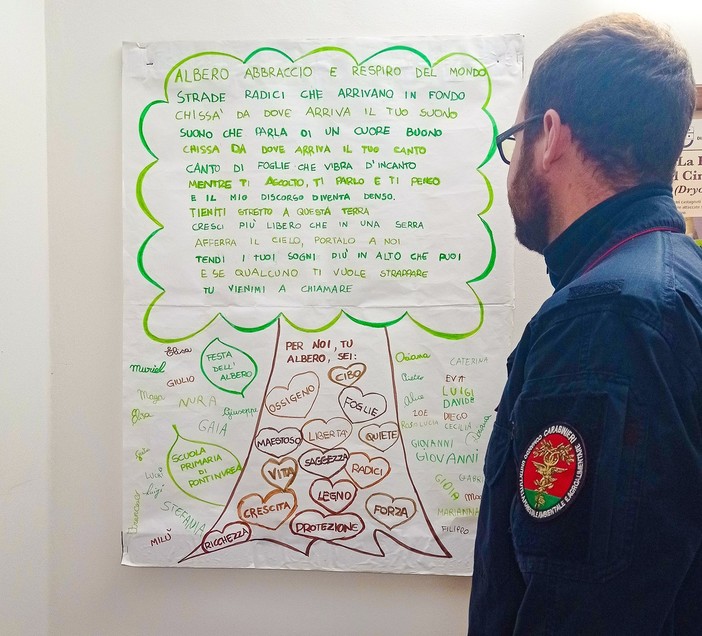 ALBERO ABBRACCIO E RESPIRO DEL MONDO
STRADE RADICI CHE ARRIVANO IN FONDO
CHISSA' DA DOVE ARRIVA IL TUO SUONO
SUONO CHE PARLA DI UN CUORE BUONO
CHISSA DA DOVE ARRIVA IL TUO CANTO
CANTO DI FOGLIE CHE VIBRA D'INCANTO
MENTRE TI ASCOLTO, TI PARLO E TI PENSO
E IL MIO DISCORSO DIVENTA DENSO.
TIENITI STRETTO A QUESTA TERRA
CRESCI PIU' LIBERO CHE IN UNA SERRA
AFFERRA IL CIELO, PORTALO A NOI
TENDI I TUOI SOGNI PIU' IN ALTO CHE PUOI
E SE QUALCUNO TI VUOLE STRAPPARE
TU VIENIMI A CHIAMARE
PER NOI, TU
ALBERO, SEI:
CIBO
OSSIGENO
FOGLIE
MAESTOSO
LIBERTÀ
QUIETE
SAGGEZZA
VITA
RADICI
LEGNO
CRESCITA
FORZA
PROTEZIONE
RICCHEZZA
Elisa
Muriel
GIULIO
FESTA
DELL'
ALBERO
NURA
Giuseppe
GAIA
SCUOLA
PRIMARIA
DI
PONTINVREA
Luigi
STEFANIA
MILÙ
CATERINA
EVA
Alice
LUIGI
DAVIDE
ZOE
DIEGO
CECILIA
GIOVANNI
GIOVANNI
GIOIA
MARIANNA
FILIPPO
La
(Dryo